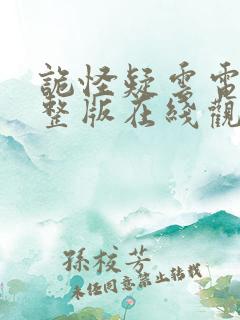 詭怪疑雲電
整版在綫觀
孫校芳
未经同意禁止转载